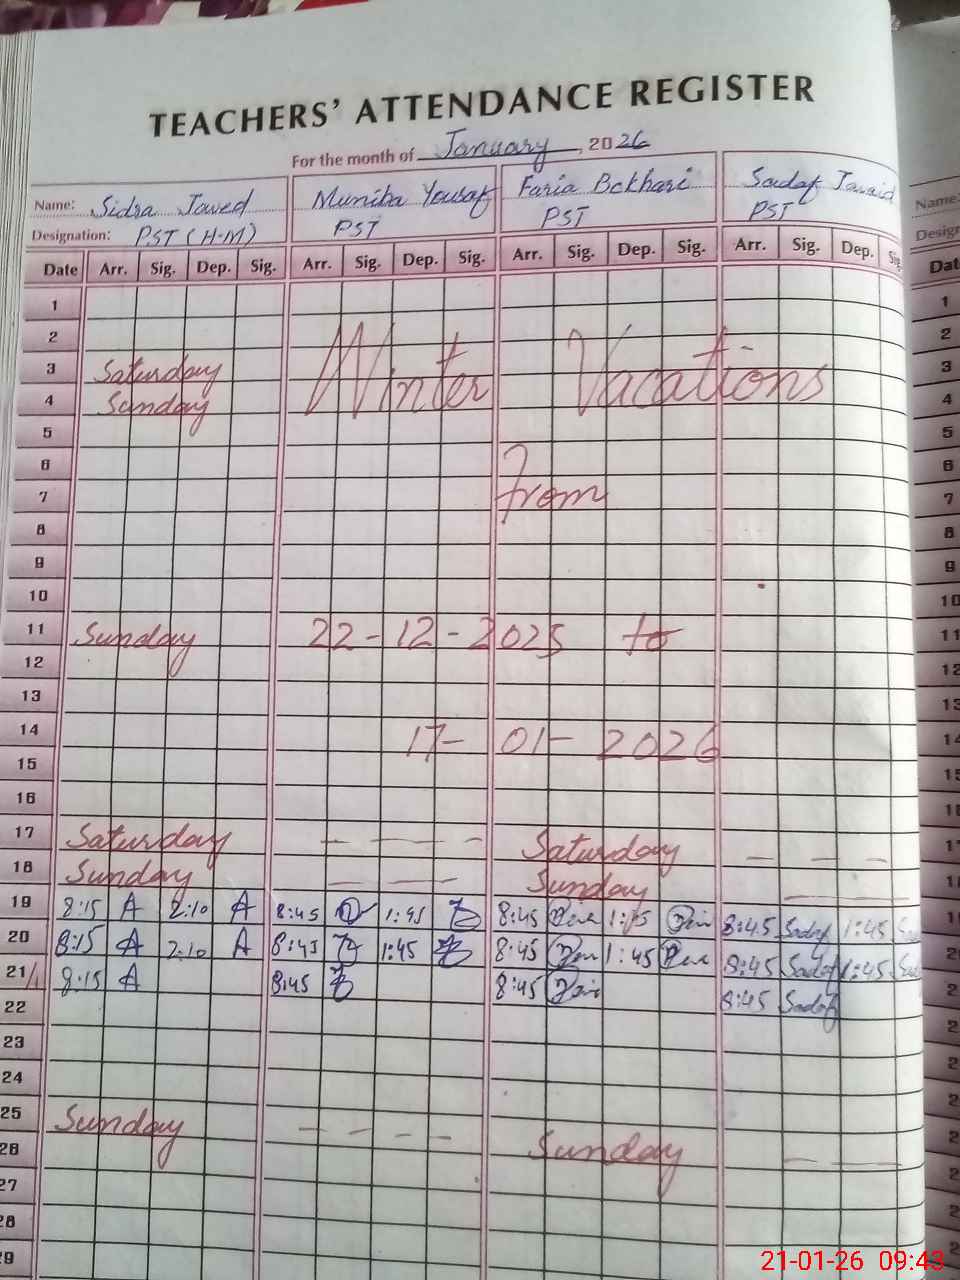 TEACHERS' ATTENDANCE REGISTER
For the month of January, 2026
Name: Sidra Javed Muniba Yousaf Faria Bokhari Sadaf Javaid Name:
Designation: PST (H-M) PST PST PST Design
Date Arr. Sig. Dep. Sig. Arr. Sig. Dep. Sig. Arr. Sig. Dep. Sig. Arr. Sig. Dep. Sig Dat
1
2
3 Saturday Winter Vacations
4 Sunday
5
6
7 from
8
9
10
11 Sunday 22-12-2025 to
12
13
14 17-01-2026
15
16
17 Saturday - - - - Saturday - - -
18 Sunday - - - Sunday - - -
19 8:15 A 2:10 A 8:45 1:45 8:45 1:45 8:45 Sadaf 1:45
20 8:15 A 2:10 A 8:45 1:45 8:45 1:45 8:45 Sadaf 1:45
21/1 8:15 A 8:45 8:45 8:45 Sadaf
22
23
24
25 Sunday - - - - Sunday - - -
26
27
28
29
21-01-26 09:43